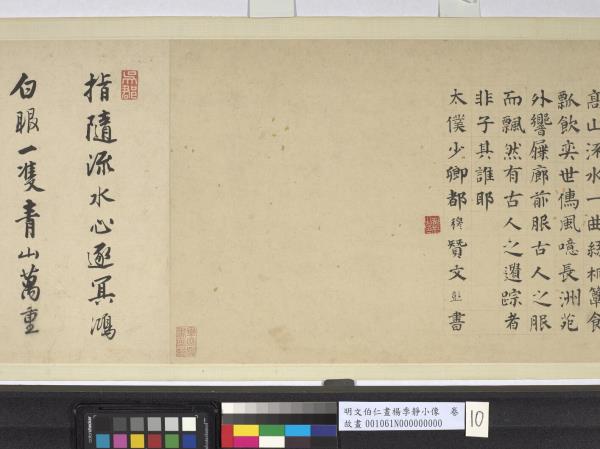 高山流水一曲絲桐簞食
瓢飲奕世儒風噫長洲苑
外響屧廊前服古人之服
而飄然有古人之遺踪者
非子其誰耶
太僕少卿都穆贊文彭書
吳郡
指隨流水心逐冥鴻
白眼一隻青山萬重
明文伯仁畫楊季靜小像 卷
故畫 001061N000000000
10